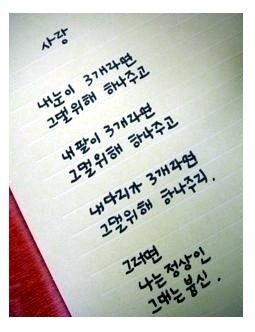 사랑
내눈이 3개라면
그댈위해 하나주고
내팔이 3개라면
그댈위해 하나주고
내다리가 3개라면
그댈위해 하나주리.
그러면
나는정상인
그대는븅신.